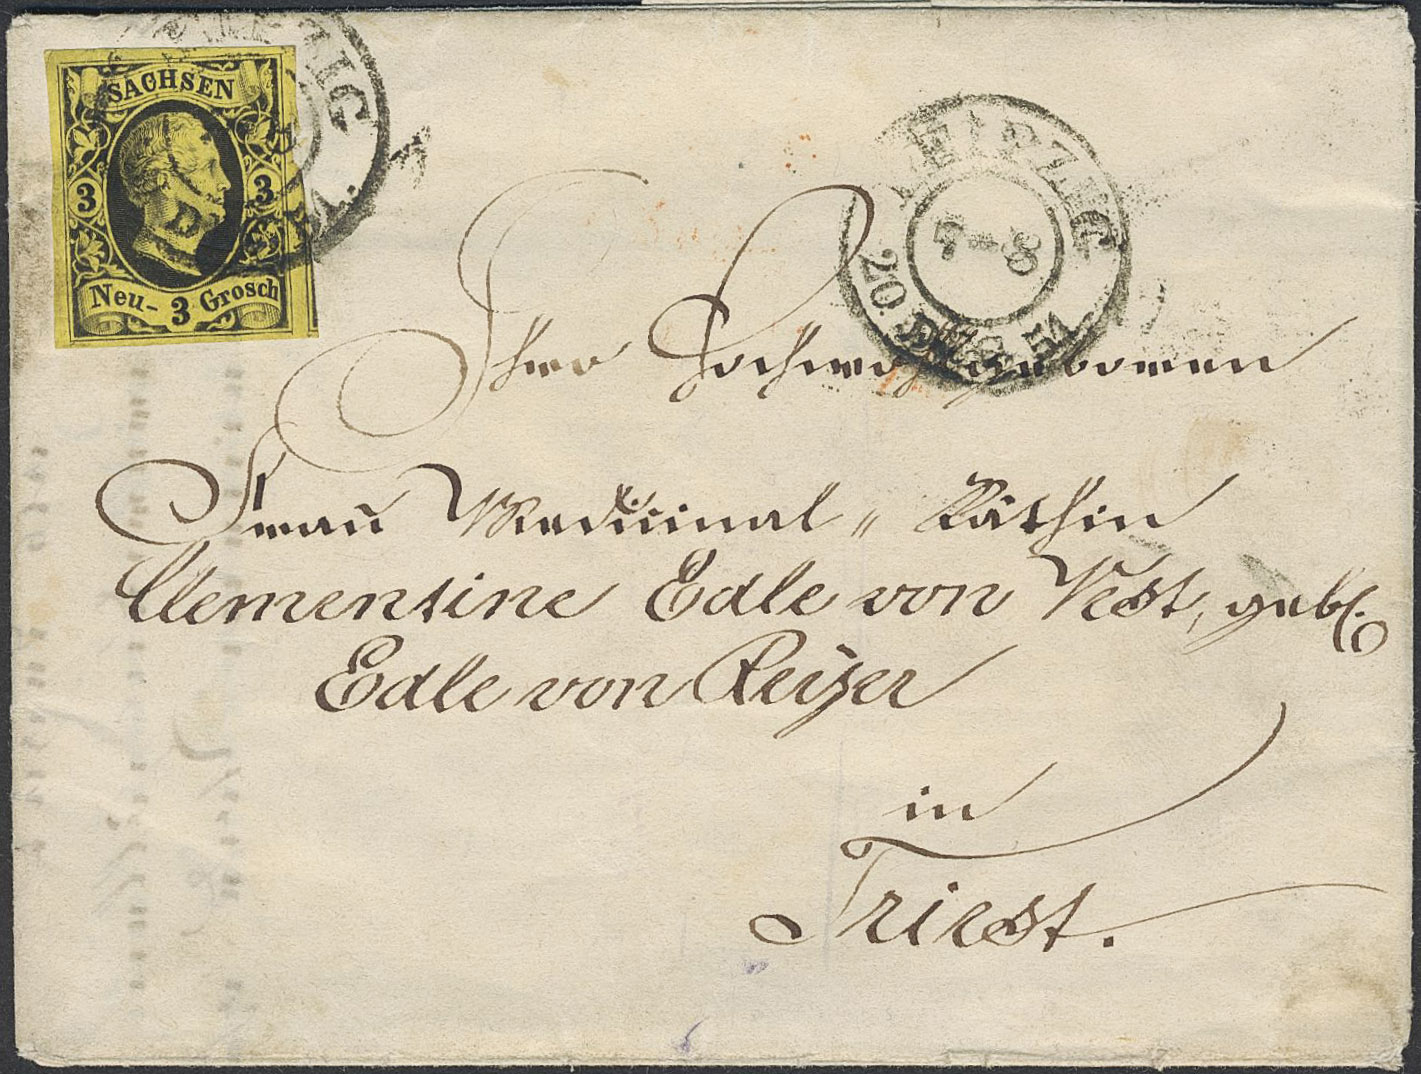 SACHSEN
3 3
Neu- 3 Grosch
LEIPZIG
LEIPZIG
7-8
20. DEC 51
Ihrer Hochwohlgebornen
Frau Medicinal-Räthin
Clementine Edle von Vest, geb.
Edle von Reizer
in
Triest.